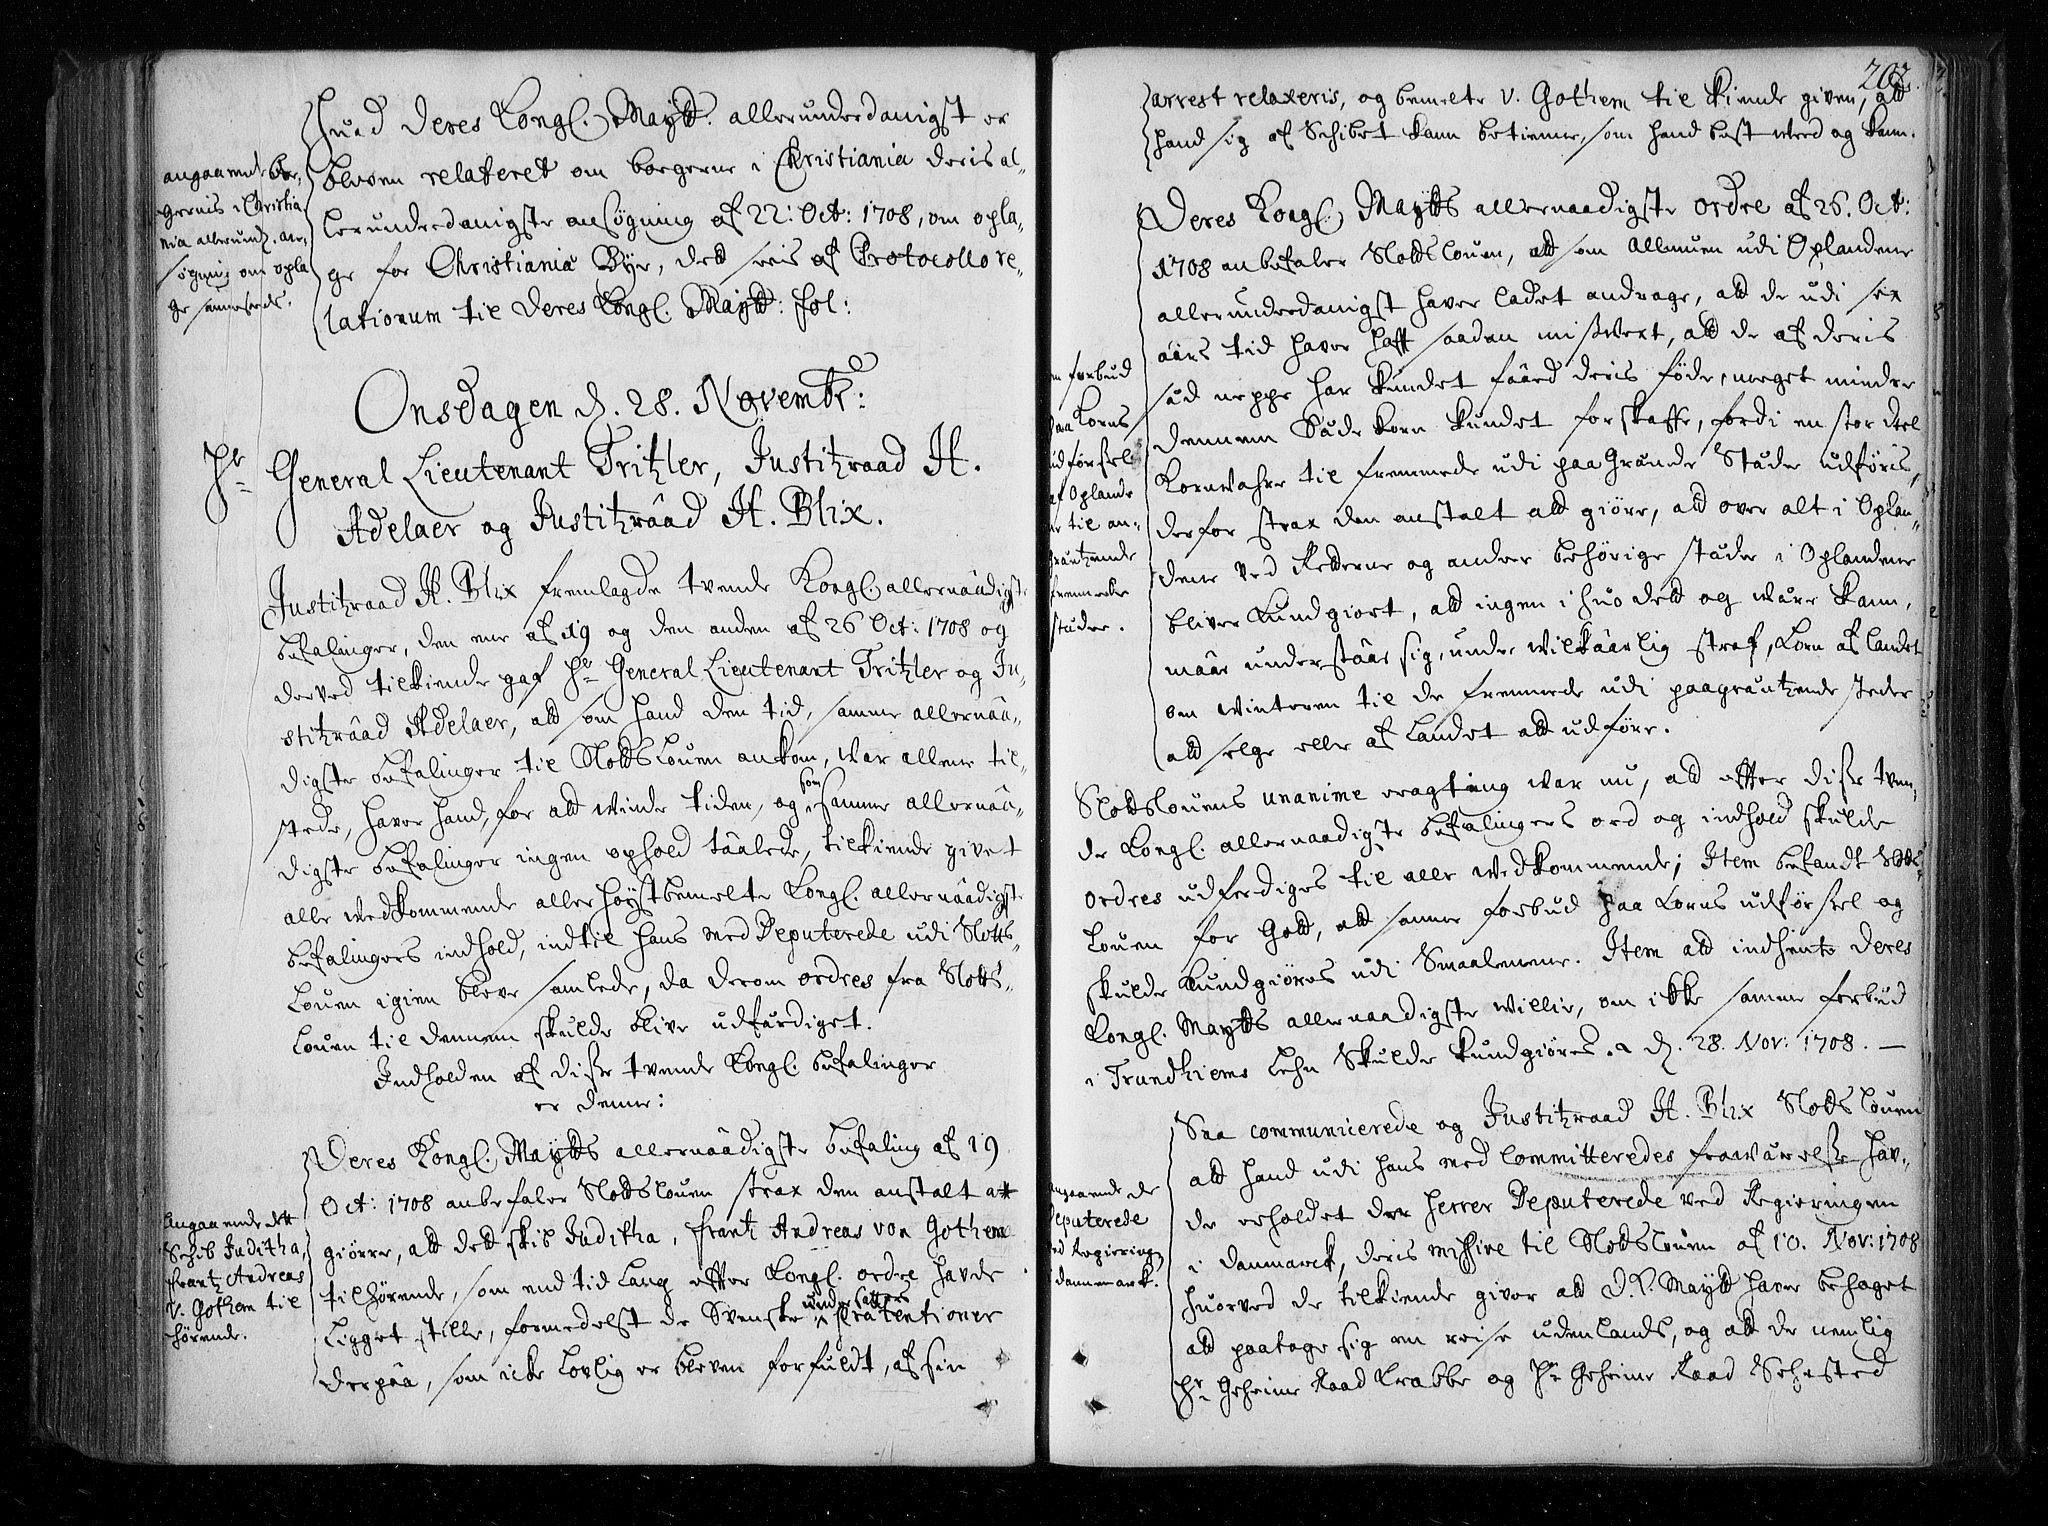 Huad Deres Kongl. Maytt. allerunderdanigst er
bleven relateret om borgerne i Christiania deris al-
lerunderdanigste ansøgning af 22: Oct: 1708, om opla-
ge for Christiania Bye, dett sees af Protocollo re-
lationum til Deres Kongl. Maytt: fol:
angaaende bor-
gernis i Christia-
nia allerund. an-
søgning om opla
ge sammesteds.
Onsdagen d. 28. Novembr:
Hr General Lieutenant Tritzler, Justitzraad H.
Adelaer og Justitzraad H. Blix.
Justitzraad H. Blix fremlagde tvende Kongl. allernaadigste
befalinger, den ene af 19 og den anden af 26 Oct: 1708 og
derved tilkiende gaf Hr General Lieutenant Tritzler og Ju-
stitzraad Adelaer, att som hand den tid, samme allernaa-
digste befalinger til Slottsloven ankom, war allene til-
stede, haver hand, for att winde tiden, og som samme allernaa-
digste befalinger ingen ophold taalede, tilkiende givet
alle wedkommende allerhøystbemelte Kongl. allernaadigste
befalingers indhold, indtil hans med Deputerede udi Slotts-
Loven igien bleve samlede, da derom ordres fra Slotts-
Loven til dennem skulde blive udfærdiget.
Indholden af disse tvende Kongl. befalinger
er denne:
Deres Kongl. Maytts allernaadigste befaling af 19
Oct: 1708 anbefaler Slottsloven strax den anstalt att
giøre, att dett skib Juditha, Frantz Andreas von Gothem
tilhørende, som end tid lang efter Kongl. ordre havde
ligget stille, formedelst de Svenske undersatters prætentioner
derpaa, som icke lovlig er bleven forfuldt, af sin
Angaaende dett
Schib Juditha,
Frantz Andreas
v. Gothem til
hørende.
202.
arrest relaxeris, og bemelte v. Gothem til kiende given, att
hand sig af Schibet kann betienne, som hand best weed og kann.
Deres Kongl. Maytts allernaadigste ordre af 26. Oct:
1708 anbefaler Slottsloven, att som Allmuen udi Oplandene
allerunderdanigst haver ladet andrage, att de udi sex
aars tid haver hafft saaden misvext, att de af deris
sæd neppe har kundet faaed deris føde, meget mindre
dennem Sæde korn kundet forskaffe, fordi en stor deel
Kornwahre til fremmede udi paa Grændse Stæder udføris,
derfor strax den anstalt att giøre, att over alt i Oplan-
dene ved Retterne og andre behørige stæder i Oplandene
bliver kundgiort, att ingen i hvo dett og være kann,
maae understaae sig, under wilkaarlig straf, korn af landet
om winteren til de fremmede udi paagrændtzende steder
att selge eller af Landet att udføre.
om forbud
paa Korns
udførssel
af Oplande
ne til an-
grændtzende
fremmede
stæder.
Slottslovens unanime eragting war nu, att efter disse tven-
de Kongl. allernaadigste befalingers ord og indhold skulde
ordres udferdiges til alle wedkommende; Item befandt Slotts-
Loven for Gott, att samme forbud paa Korns udførssel og
skulde kundgiøres udi Smaalenene. Item att indhente Deres
Kongl. Maytts allernaadigste willie, om ikke samme forbud
i Trundhiems Lehn Skulde kundgiøres. d. 28. Nov: 1708. —
Saa communicerede og Justitzraad H. Blix Slottsloven
att hand udi hans med Committeredes frawærelsse hav-
de erholdet der Herrer Deputerede ved Regieringen
i Danmarck, deris missive til Slottsloven af 10. Nov: 1708
huorved de tilkiende giver att D. K. Maytt haver behaget
att paatage sig en reise udenlands, og att de nemlig
Hr Geheime Raad Krabbe og Hr Geheime Raad Sehested
angaaende de
Deputerede
ved Regieringen
i dannemarck.